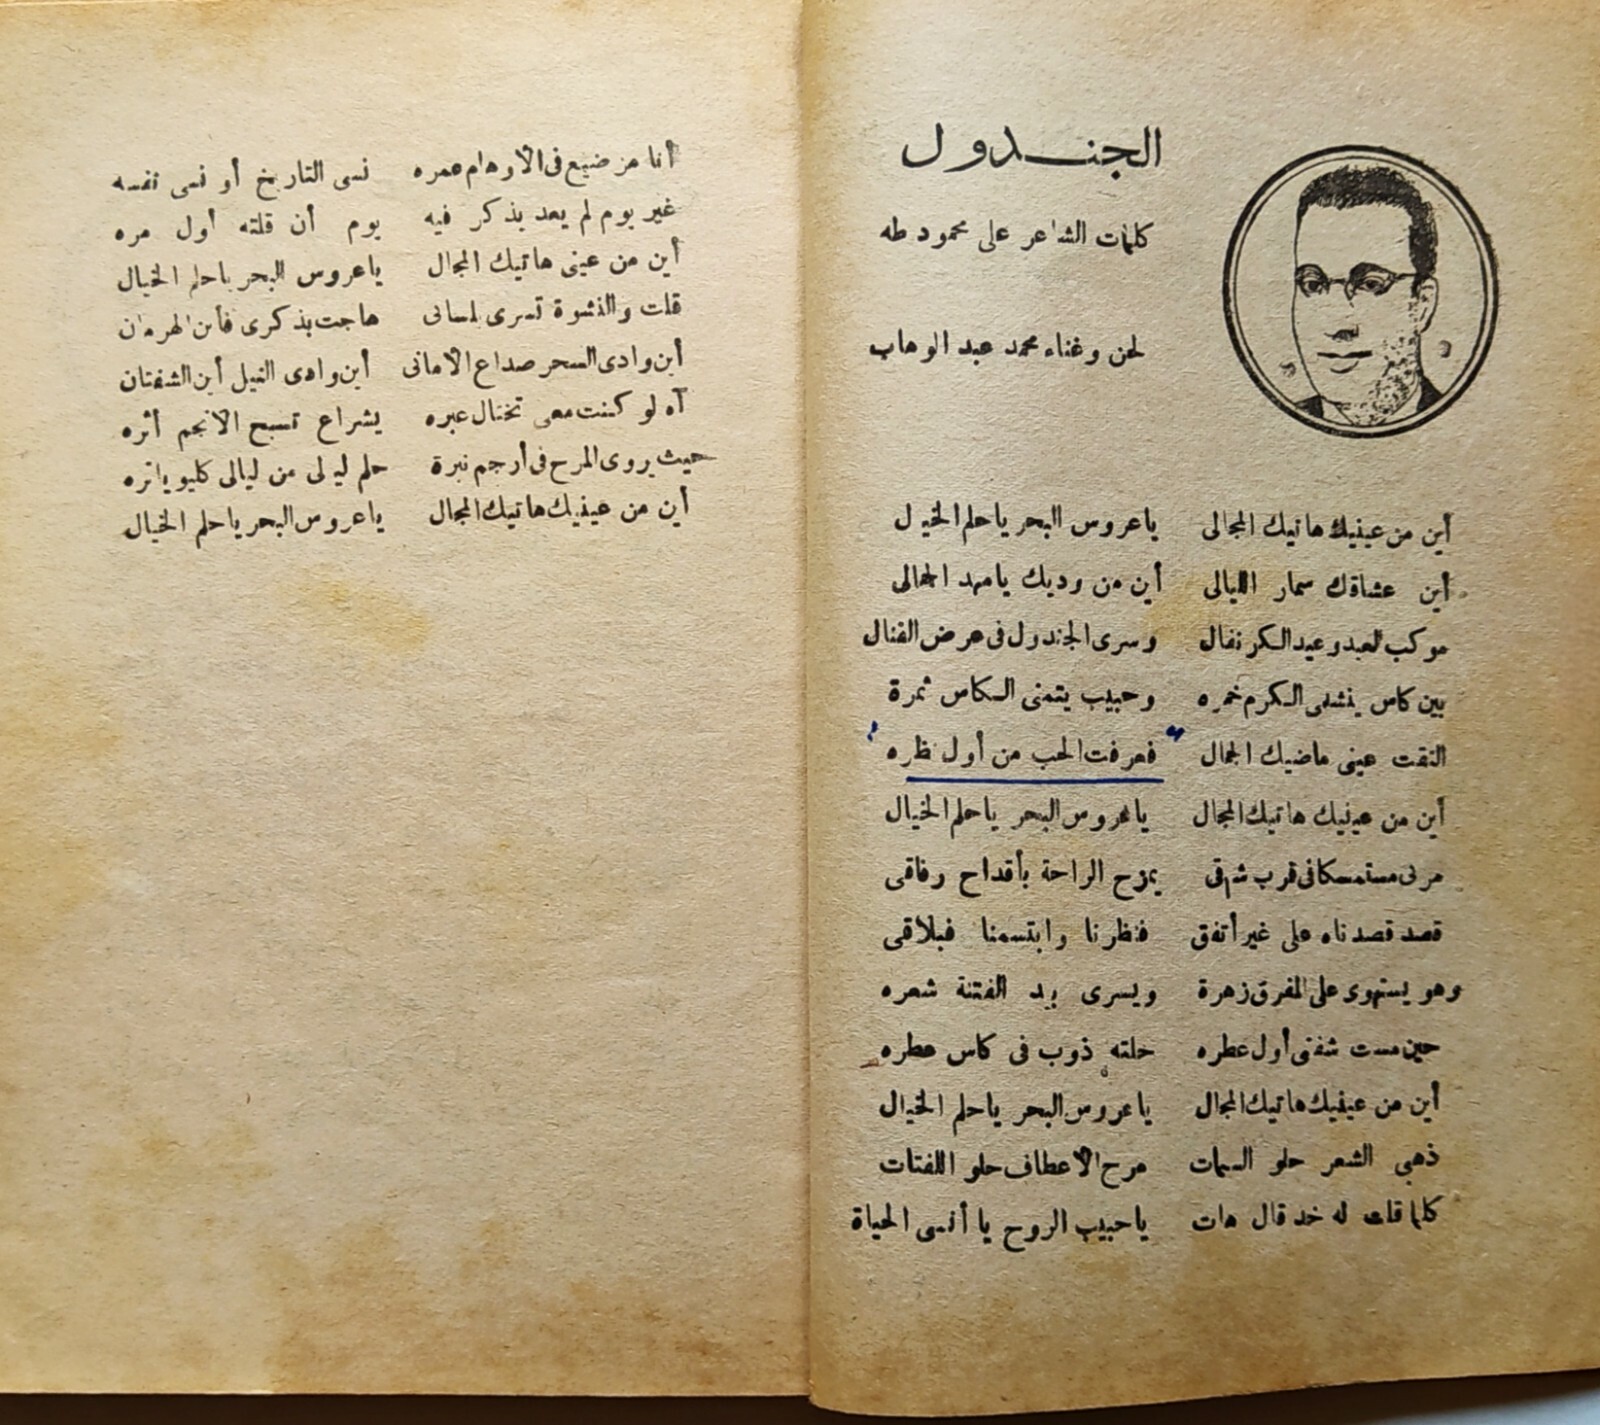 الجندول
كلمات الشاعر على محمود طه
لحن وغناء محمد عبد الوهاب
أين من عينيك هاتيك المجالى ياعروس البحر ياحلم الخيال
أين عشاقك سمار الليالى أين من وديك يامهد الجمالى
موكب العيد وعيد الكرنفال وسرى الجندول فى عرض القنال
بين كاس ينشهى الكرم خمره وحبيب يتمنى الكاس ثمرة
التقت عينى ماضيك الجمال فعرفت الحب من أول نظره
أين من عينيك هاتيك المجال ياعروس البحر ياحلم الخيال
مر بى مستمسكا فى قرب شرقى يمزح الراحة بأقداح رفاقى
قصد قصدناه على غير أتفق فنظرنا وابتسمنا فبلاقى
وهو يستهوى على المفرق زهرة ويسرى بيد الفتنة شعره
حين مست شفتى أول عطره حلته ذوب فى كاس عطره
أين من عينيك هاتيك المجال ياعروس البحر ياحلم الخيال
ذهبى الشعر حلو السمات مرح الاعطاف حلو اللفتات
كلما قلت له خد قال هات ياحبيب الروح يا أنسى الحياة
أنا من ضيع فى الاوهام عمره نسى التاريخ أو نسى نفسه
غير يوم لم يعد يذكر فيه يوم أن قلته أول مره
أين من عينى هاتيك المجال ياعروس البحر ياحلم الخيال
قلت والنشوة تسرى لسانى هاجت بذكرى فأين الهرمان
أين وادى السحر صداع الامانى أين وادى النيل أين الشفتان
آه لو كنت معى تختال عبره بشراع تسبح الانجم أثره
حيث يروى المرح فى أرجم نبرة حلم ليلى من ليالى كليوباتره
أين من عينيك هاتيك المجال ياعروس البحر ياحلم الخيال